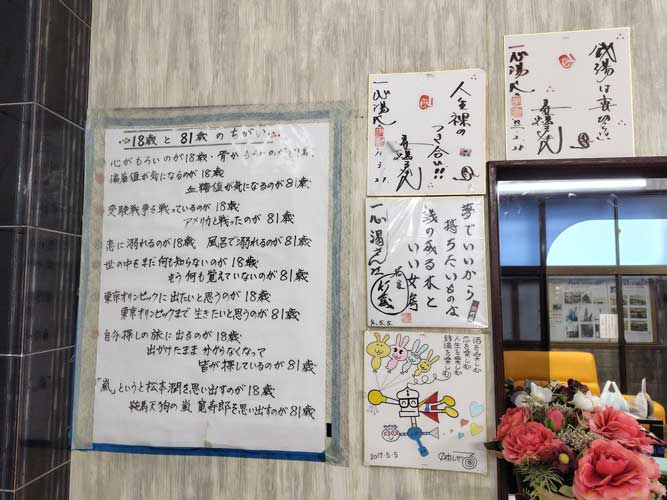 18歳と81歳のちがい
心がもろいのが18歳・骨がもろいのが81歳
偏差値が気になるのが18歳
血糖値が気になるのが81歳
受験戦争を戦っているのが18歳
アメリカと戦ったのが81歳
恋に溺れるのが18歳 風呂で溺れるのが81歳
世の中をまだ何も知らないのが18歳
もう何も覚えていないのが81歳
東京オリンピックに出たいと思うのが18歳
東京オリンピックまで生きたいと思うのが81歳
自分探しの旅に出るのが18歳
出かけたまま分からなくなって
皆が探しているのが81歳
「嵐」というと松本潤を思い出すのが18歳
鞍馬天狗の嵐寛寿郎を思い出すのが81歳
人生裸の
つき合い!!
一心湯
夢でいいから
持ちたいものは
銭の成る木と
いい女房
一心湯さん江
5.5
酒を楽しむ
人生を楽しむ
恋を楽しむ
銭湯を楽しむ
2017.5.5
一心湯